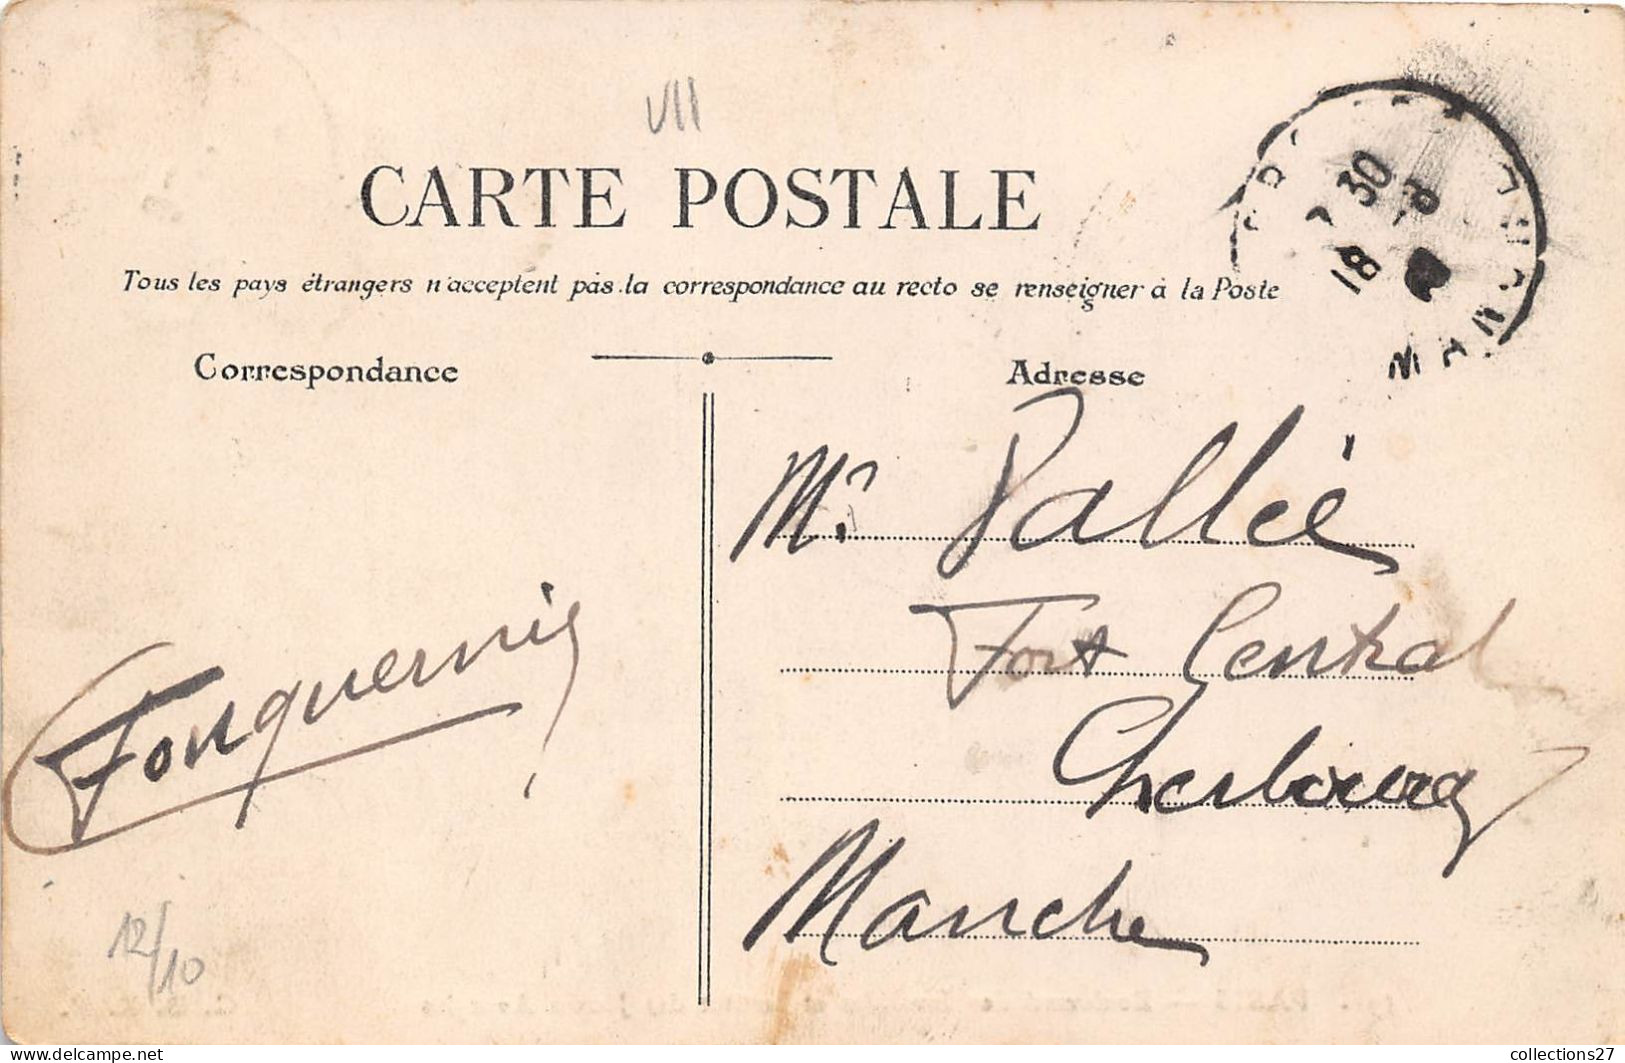 VII
CARTE POSTALE
Tous les pays étrangers n'acceptent pas la correspondance au recto se renseigner à la Poste
Correspondance
Adresse
7 30
18 -8
MANCHE
Mr. Pallée
Fort Central
Cherbourg
Manche
Fouquernie
12/10
collections27